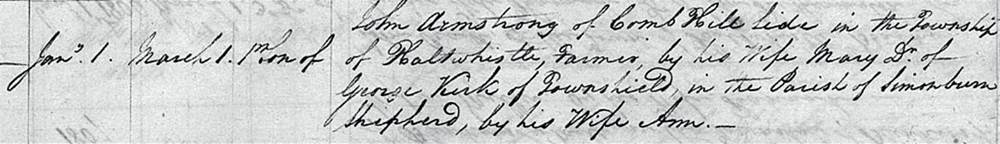 John Armstrong of Comb Hill Side in the Township
Jany. 1. March 1. 1st Son of of Haltwhistle, Farmer, by his Wife Mary Dr. of
George Kirk of Townshield, in the Parish of Simonburn
Shepherd, by his Wife Ann. —